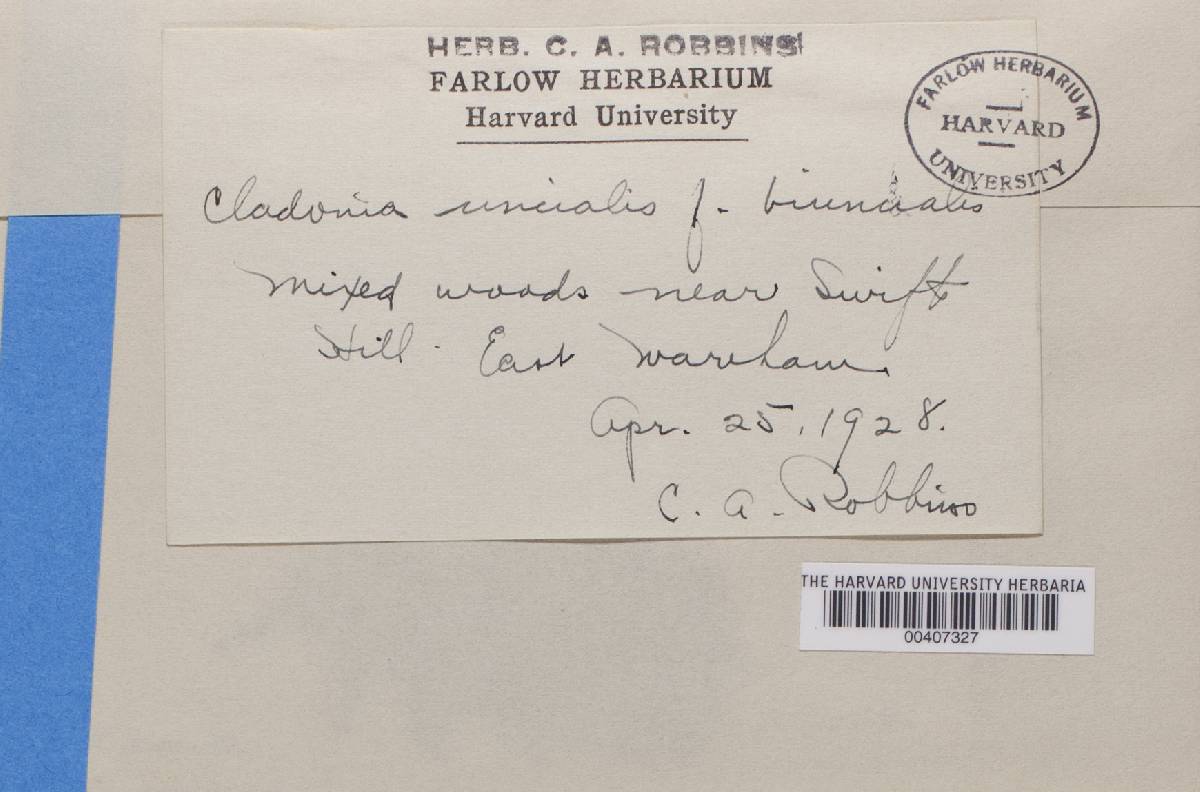 HERB. C. A. ROBBINS
FARLOW HERBARIUM
Harvard University
FARLOW HERBARIUM
HARVARD
UNIVERSITY
Cladonia uncialis f. biuncialis
Mixed woods near Swift
Hill. East Wareham.
Apr. 25, 1928.
C. A. Robbins
THE HARVARD UNIVERSITY HERBARIA
00407327